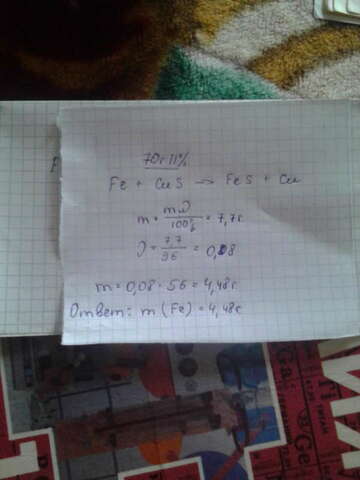 70г 11%
Fe + CuS → FeS + Cu
m = mω/100% = 7,7г
ν = 7,7/96 = 0,08
m = 0,08 · 56 = 4,48г
Ответ: m (Fe) = 4,48г